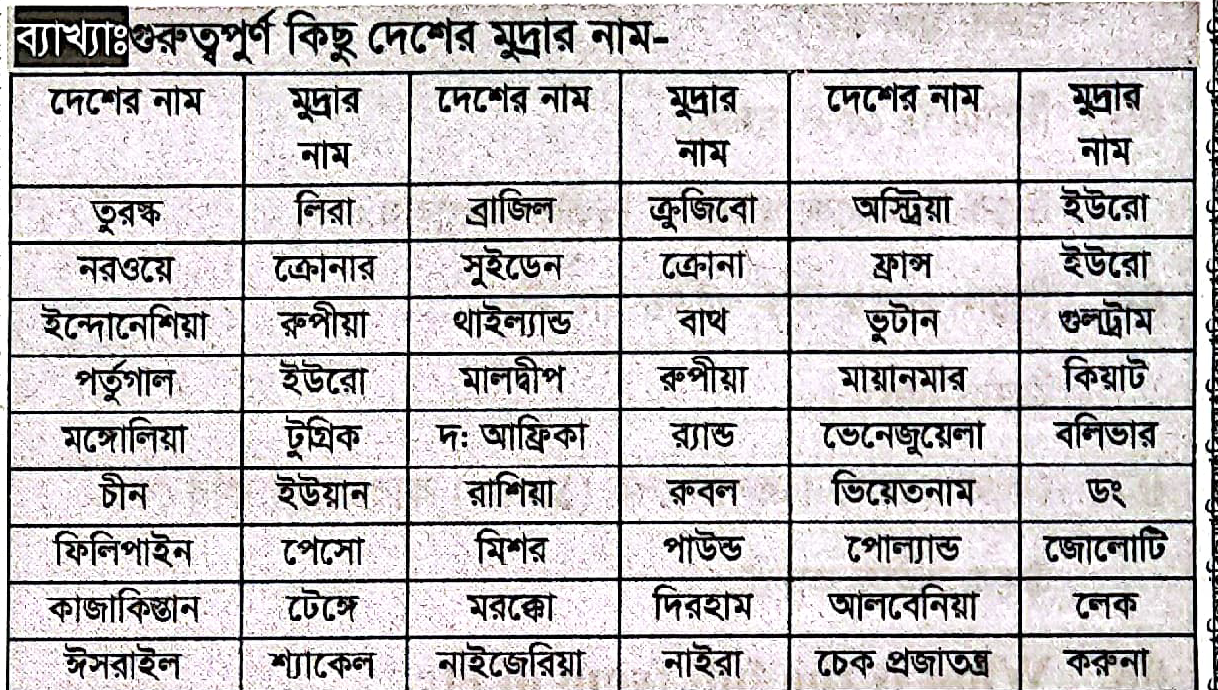 ব্যাখ্যাঃ গুরুত্বপুর্ণ কিছু দেশের মুদ্রার নাম-
দেশের নাম মুদ্রার নাম দেশের নাম মুদ্রার নাম দেশের নাম মুদ্রার নাম
তুরস্ক লিরা ব্রাজিল ক্রুজিবো অস্ট্রিয়া ইউরো
নরওয়ে ক্রোনার সুইডেন ক্রোনা ফ্রান্স ইউরো
ইন্দোনেশিয়া রুপীয়া থাইল্যান্ড বাথ ভুটান গুলট্রাম
পর্তুগাল ইউরো মালদ্বীপ রুপীয়া মায়ানমার কিয়াট
মঙ্গোলিয়া টুগ্রিক দ: আফ্রিকা র‍্যান্ড ভেনেজুয়েলা বলিভার
চীন ইউয়ান রাশিয়া রুবল ভিয়েতনাম ডং
ফিলিপাইন পেসো মিশর পাউন্ড পোল্যান্ড জোলোটি
কাজাকিস্তান টেঙ্গে মরক্কো দিরহাম আলবেনিয়া লেক
ঈসরাইল শ্যাকেল নাইজেরিয়া নাইরা চেক প্রজাতন্ত্র করুনা